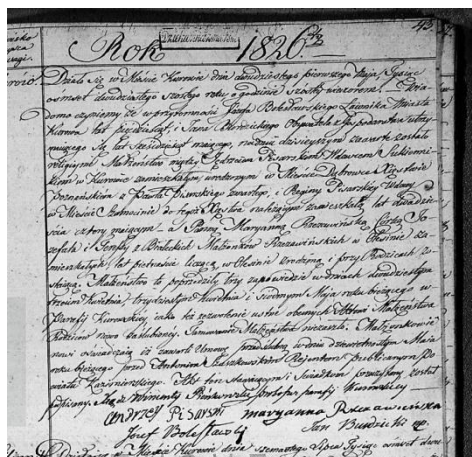 Rok 1826
Działo się w Mieście Kurowie dnia dwudziestego pierwszego Maja Tysiąc
ośmset dwudziestego szóstego roku o godzinie szóstej wieczorem. Wia-
domo czynimy że w przytomności Józefa Bolesławskiego Ławnika Miasta
Kurowa lat pięćdziesiąt i Jana Obywatela z Gospodarstwa utrzy-
mującego się lat sześćdziesiąt mających, na dniu dzisiejszym zawarte zostało
religijne Małżeństwo między Jędrzejem Pisarskim Wdowcem Sukienni-
kiem w Kurowie zamieszkałym urodzonym w Mieście w Xięstwie
Poznańskim z Pawła Pisarskiego zmarłego, i Reginy Pisarskiej Wdowy
w Mieście do tegoż Xięstwa należącym zamieszkałej, lat dwadzie-
ścia cztery mającym a Panną Maryanną Rzezawińską Córką Jó-
zefa i Małżonków Rzezawińskich w za-
mieszkałych, lat piętnaście liczącą, w zrodzoną i przy Rodzicach zo-
stającą. Małżeństwo to poprzedziły trzy zapowiedzie w dniach dwudziestym
trzecim Kwietnia, trzydziestym Kwietnia i siódmym Maja roku bieżącego w
Parafij Kurowskiej, jako też zezwolenie ustne obecnych Aktowi Małżeństwa
Rodziców nowo zaślubionej. Tamowanie Małżeństwa nie zaszło. Małżonkowie
nowi oświadczają iż zawarli Umowę przedślubną w dniu Maja
roku bieżącego przed Antonim Rejentem publicznym Po-
wiatu Kazimirskiego. Akt ten stawającym i Świadkom przeczytany został
podpisany. X. Wincenty Proboszcz parafij Kurowskiej
ANDRZEY PISARSKI maryanna Rzezawińska
Józef Bolesławski Jan
Działo się w Mieście Kurowie dnia Lipca Tysiąc ośmset dwu-